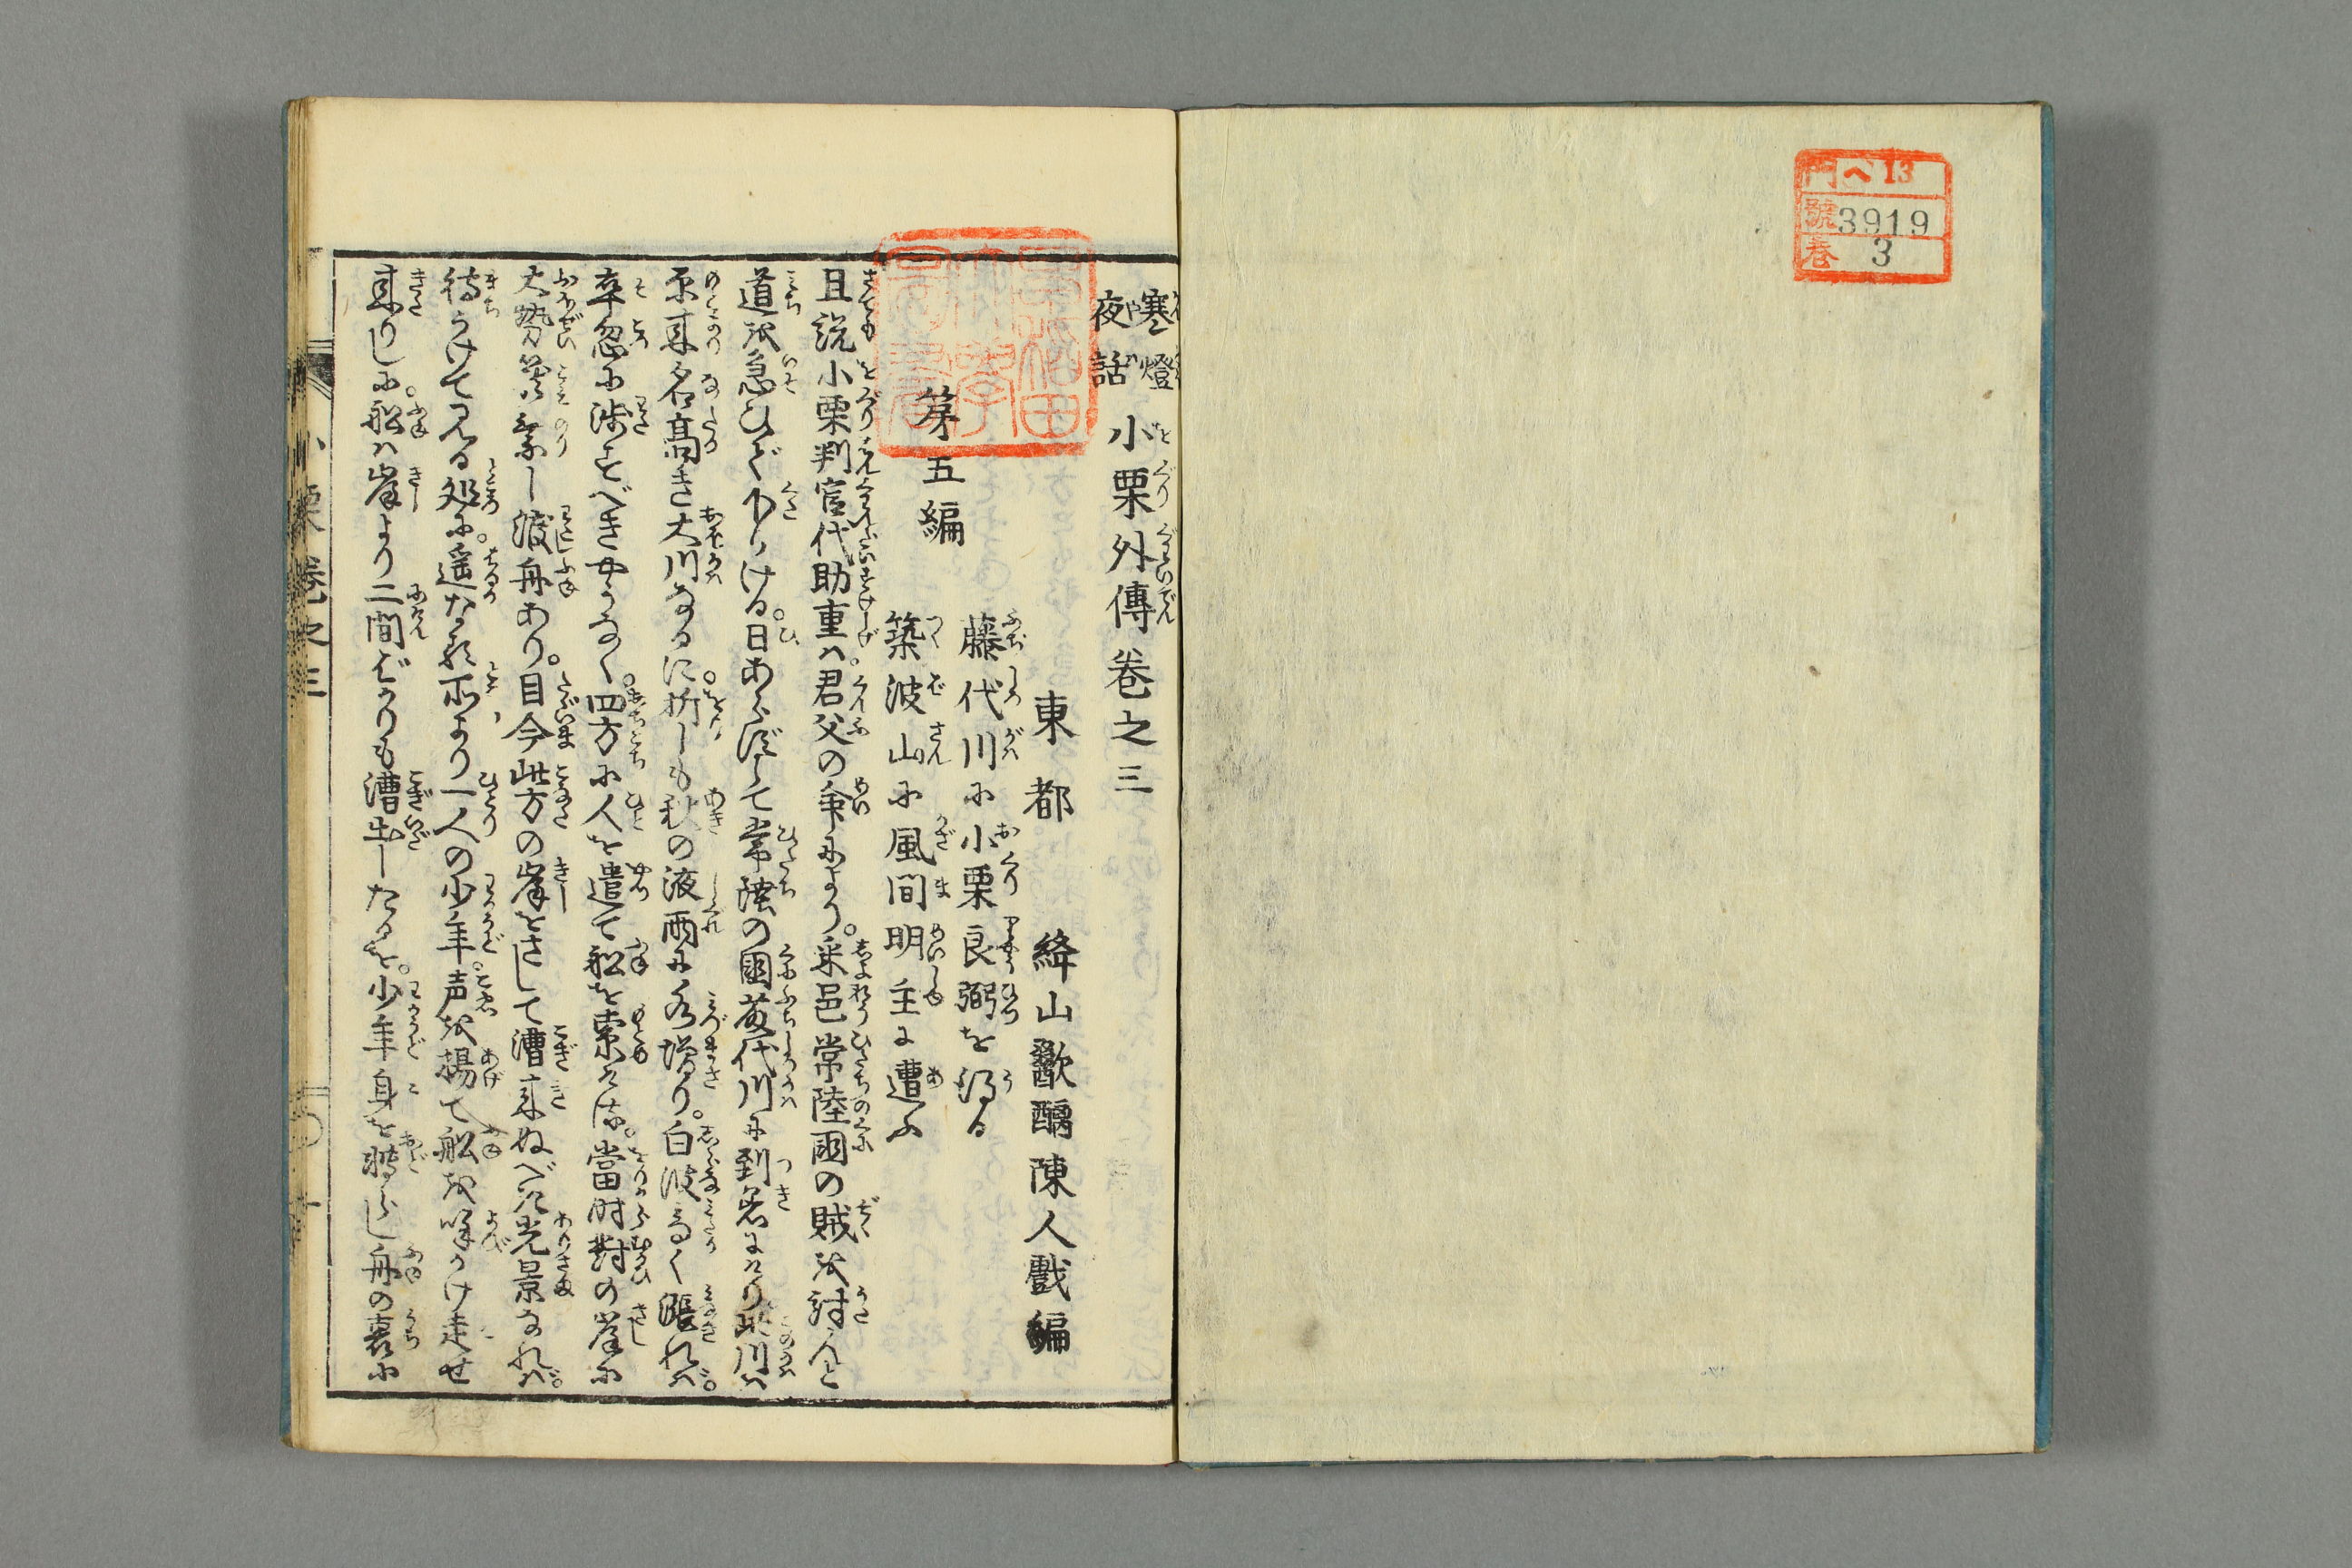 門 ヘ13
號 3919
巻 3
寒燈
夜話
小栗外傳巻之三
東都 絳山歠醨陳人戲編
早稲田
大學
圖書
第五編
藤代川に小栗良弼を得る
築波山に風間明主に遭ふ
且説小栗判官代助重は。君父の命により。采邑常陸國の賊を討んと
道を急ひでゆける。日あらずして常陸の國藤代川に到着にけり此川は
原来名高き大川なるに。折しも秋の液雨に水増り。白波高く漲れば。
卒忽に渉すべきやうなく。四方に人を遣て舩を索ける。當時對の岸に
大勢篭乗し渡舟あり。目今此方の岸をさして漕来ぬべき光景なれば。
待うけてゐる処に。遥なる所より一人の少年。声を揚て舩を呼かけ走せ
来りしに。舩は岸より二間ばかりも漕出したるを。少年身を跳らし舟の裏に
小栗巻之三